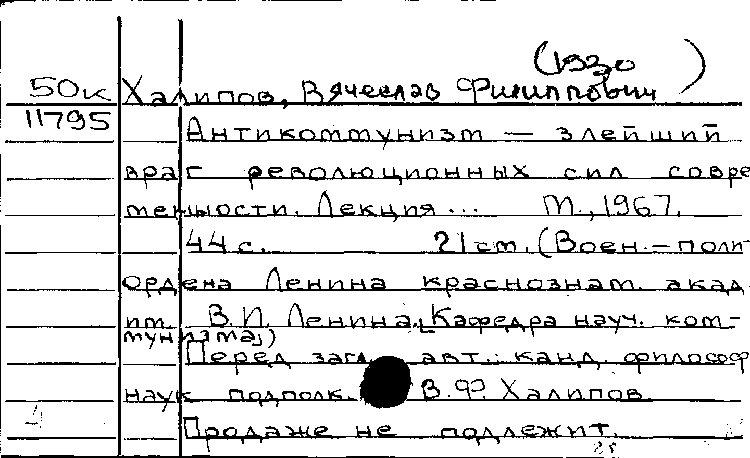 (1930 )
50к Халипов, Вячеслав Филиппович
11795 Антикоммунизм — злейший
враг революционных сил совре
менности. Лекция... М., 1967.
44 с. 21 см. (Воен.-поли
ордена Ленина краснознам. акад
им. В.И. Ленина. [Кафедра науч. ком-
мунизма])
Перед загл. авт.: канд. философ
наук подполк. В.Ф. Халипов.
Продаже не подлежит.